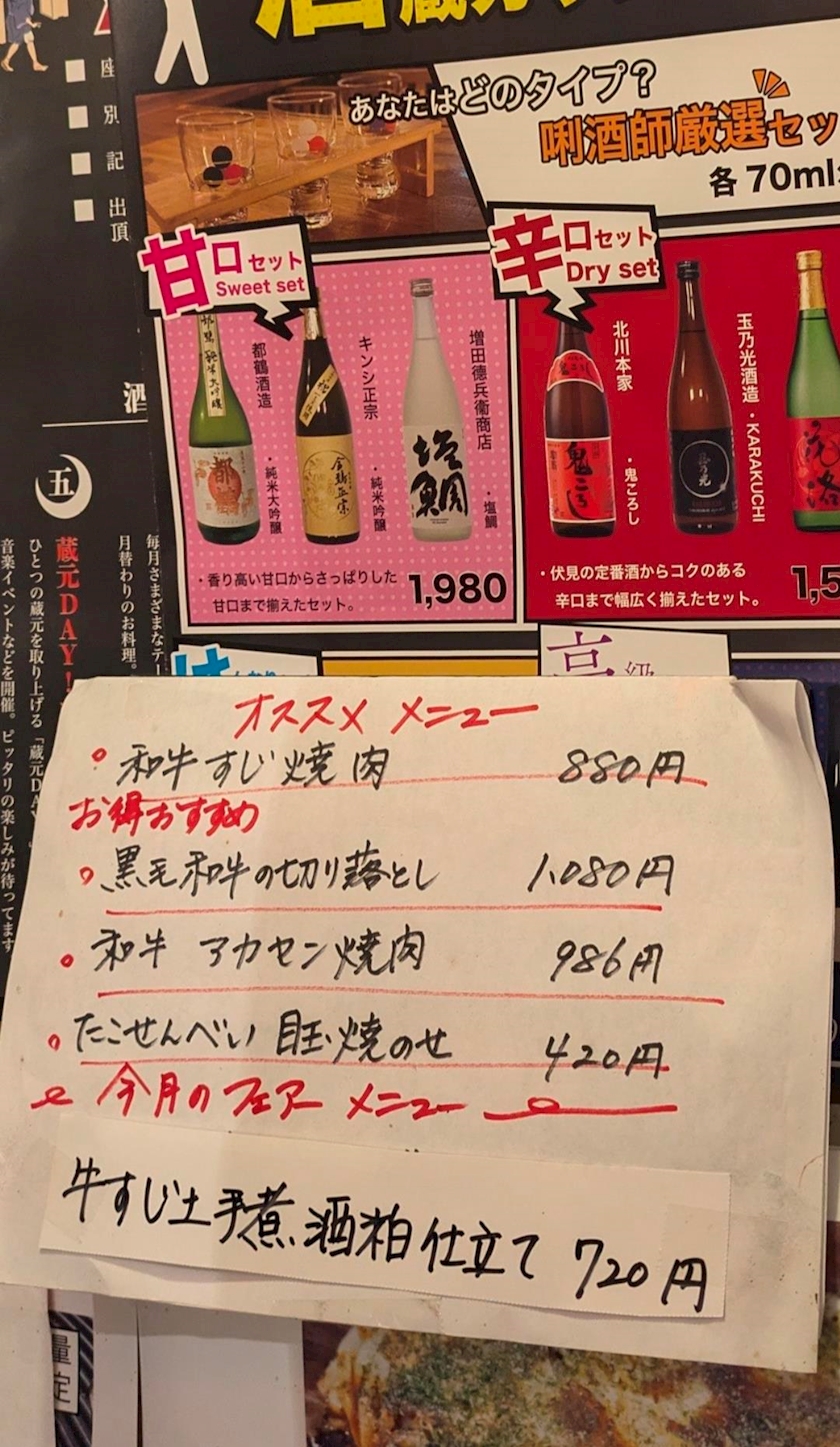 座
別
記
出
頂
あなたはどのタイプ？
唎酒師厳選セッ
各70ml
甘口セット
Sweet set
都鶴酒造
・純米大吟醸
キンシ正宗
・純米吟醸
増田德兵衞商店
・塩鯛
都鶴
金鵄正宗
塩鯛
・香り高い甘口からさっぱりした
甘口まで揃えたセット。
1,980
辛口セット
Dry set
北川本家
・鬼ころし
玉乃光酒造
・KARAKUCHI
鬼ころし
玉乃光
・伏見の定番酒からコクのある
辛口まで幅広く揃えたセット。
1,5
酒
五
蔵元DAY！
ひとつの蔵元を取り上げる「蔵元DAY
音楽イベントなどを開催。ピッタリの楽しみが待ってます
毎月さまざまなテー
月替わりのお料理。
高級
オススメ メニュー
和牛すじ焼肉 880円
お得おすすめ
黒毛和牛の切り落とし 1,080円
和牛 アカセン焼肉 986円
たこせんべい 目玉焼のせ 420円
今月のフェアー メニュー
牛すじ土手煮 酒粕仕立て 720円
量
定